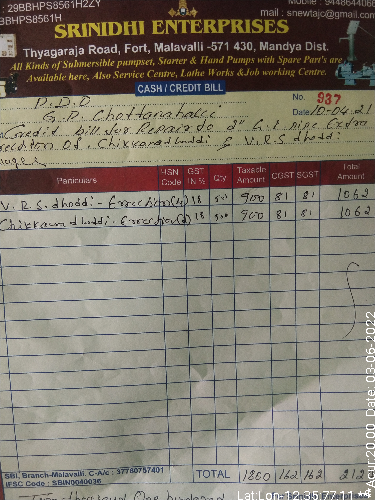 : 29BBHPS8561H2ZY
BBHPS8561H
Mobile : 9448644066
mail : snewtajc@gmail.com
SRINIDHI ENTERPRISES
Thyagaraja Road, Fort, Malavalli -571 430, Mandya Dist.
All Kinds of Submersible pumpset, Starter & Hand Pumps with Spare Part's are
Available here, Also Service Centre, Lathe Works & Job working Centre.
CASH / CREDIT BILL
P.D.O No. 937
G.P. Chottanahalli Date 10-04-21
Credit bill for Repair to 2" G.I pipe Extra
rection Of. Chikkaraadhoddi & V.R.S dhoddi
Particulers HSN Code GST IN % Qty Taxable Amount CGST SGST Total Amount
V.R.S. dhoddi - Errection 18 900 81 81 1062
Errection 18 900 81 81 1062
SBI, Branch-Malavalli, C-A/c : 37780757401
IFSC Code : SBIN0040036
TOTAL 1800 162 162 212
Two thousand One hundred
Lat:Lon-12.35:77.11 **
Acur:20.00 Date: 03-06-2022